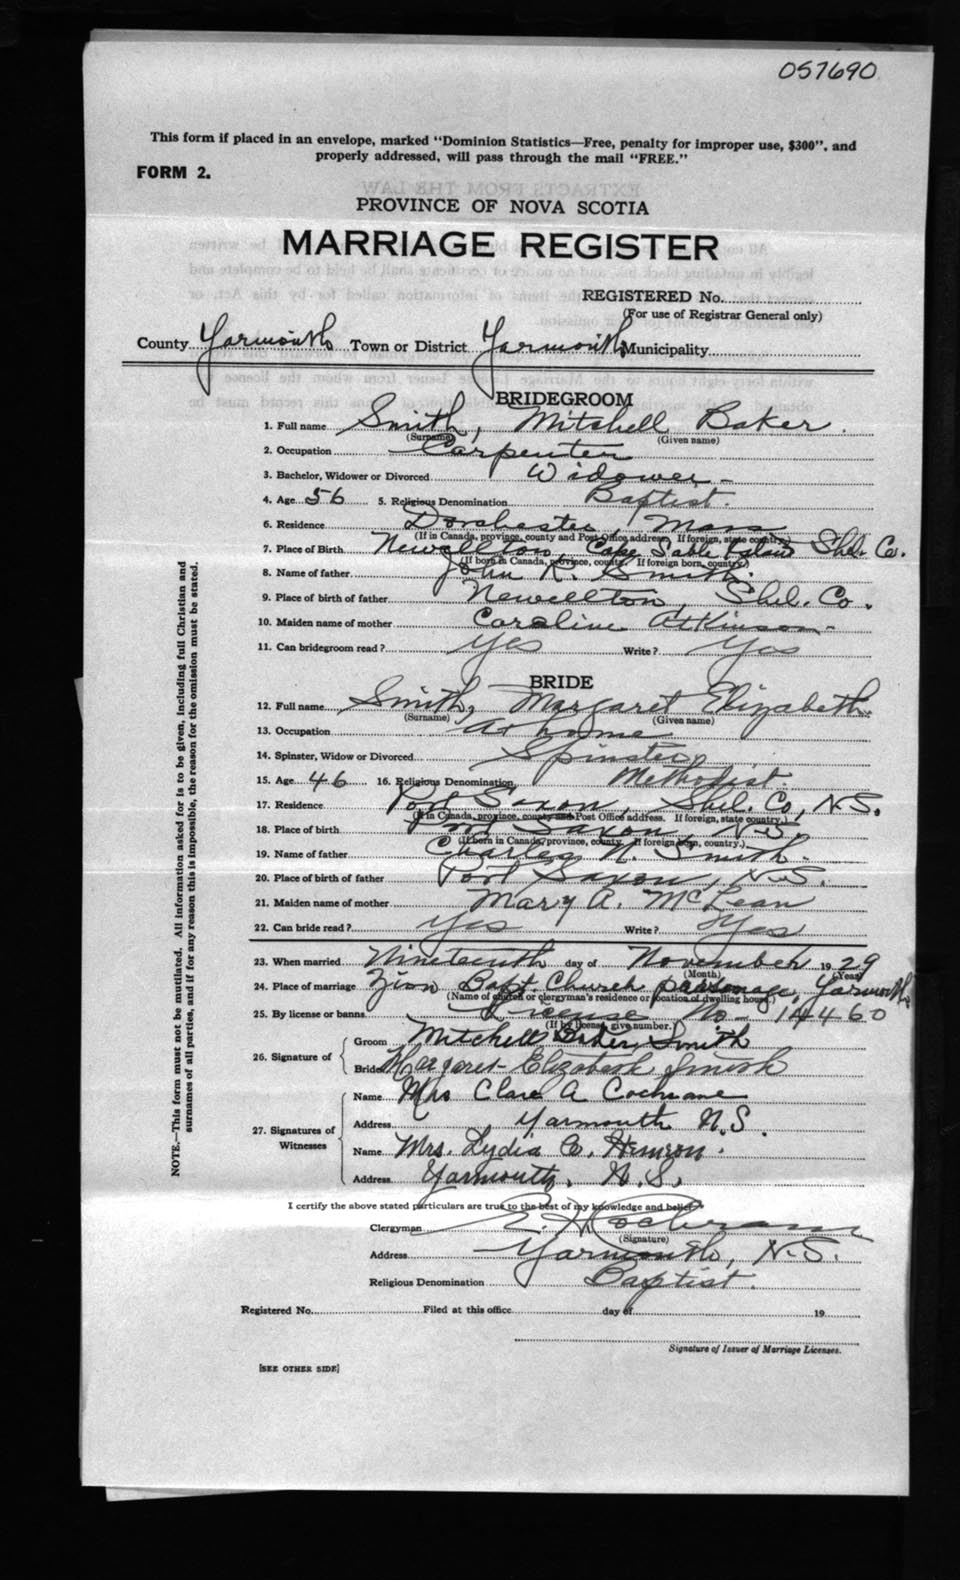 057690
This form if placed in an envelope, marked "Dominion Statistics—Free, penalty for improper use, $300", and
properly addressed, will pass through the mail "FREE."
FORM 2.
PROVINCE OF NOVA SCOTIA
MARRIAGE REGISTER
REGISTERED No.
(For use of Registrar General only)
County Yarmouth Town or District Yarmouth Municipality
BRIDEGROOM
1. Full name Smith, Mitchell Baker
(Surname) (Given name)
2. Occupation Carpenter
3. Bachelor, Widower or Divorced Widower
4. Age 56 5. Religious Denomination Baptist.
6. Residence Dorchester, Mass
(If in Canada, province, county and Post Office address. If foreign, state country.)
7. Place of Birth Newellton, Cape Sable Island Shel. Co.
(If born in Canada, province, county. If foreign born, country.)
8. Name of father John R. Smith.
9. Place of birth of father Newellton, Shel. Co.
10. Maiden name of mother Caroline Atkinson
11. Can bridegroom read? Yes Write? Yes
BRIDE
12. Full name Smith, Margaret Elizabeth
(Surname) (Given name)
13. Occupation At home
14. Spinster, Widow or Divorced Spinster
15. Age 46 16. Religious Denomination Methodist.
17. Residence Port Saxon, Shel. Co, N.S.
(If in Canada, province, county and Post Office address. If foreign, state country.)
18. Place of birth Port Saxon, N.S.
(If born in Canada, province, county. If foreign born, country.)
19. Name of father Charles N. Smith.
20. Place of birth of father Port Saxon, N.S.
21. Maiden name of mother Mary A. McLean
22. Can bride read? Yes Write? Yes
23. When married Nineteenth day of November 1929
(Month) (Year)
24. Place of marriage Zion Bapt. Church parsonage, Yarmouth
(Name of church or clergyman's residence or location of dwelling house.)
25. By license or banns License No- 14460
(If by license, give number.)
26. Signature of
Groom Mitchell Baker Smith
Bride Margaret Elizabeth Smith
27. Signatures of Witnesses
Name Mrs Clare A Cochrane
Address Yarmouth N.S.
Name Mrs. Lydia C.
Address Yarmouth, N.S.
I certify the above stated particulars are true to the best of my knowledge and belief
Clergyman E. H. Cochrane
(Signature)
Address Yarmouth, N.S.
Religious Denomination Baptist.
Registered No. Filed at this office day of 19
Signature of Issuer of Marriage Licenses.
[SEE OTHER SIDE]
NOTE.—This form must not be mutilated. All information asked for is to be given, including full Christian and
surnames of all parties, and if for any reason this is impossible, the reason for the omission must be stated.